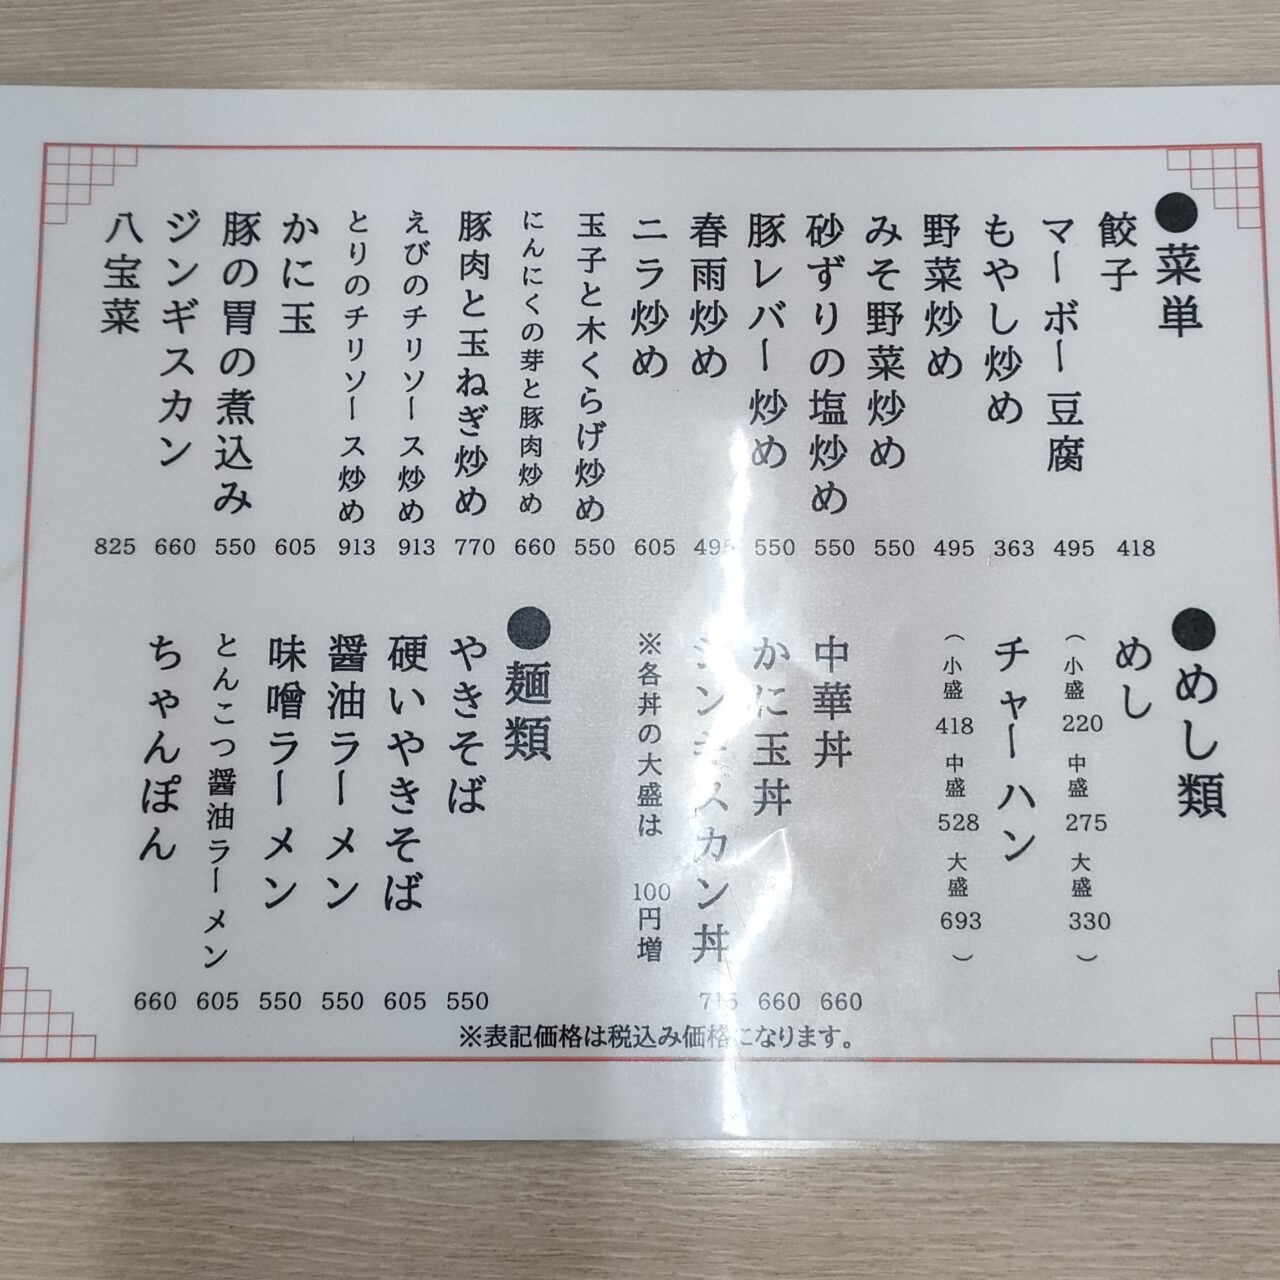 ●菜単
餃子 418
マーボー豆腐 495
もやし炒め 363
野菜炒め 495
みそ野菜炒め 550
砂ずりの塩炒め 550
豚レバー炒め 550
春雨炒め 495
ニラ炒め 605
玉子と木くらげ炒め 550
にんにくの芽と豚肉炒め 660
豚肉と玉ねぎ炒め 770
えびのチリソース炒め 913
とりのチリソース炒め 913
かに玉 605
豚の胃の煮込み 550
ジンギスカン 660
八宝菜 825
●めし類
めし
（小盛 220 中盛 275 大盛 330）
チャーハン
（小盛 418 中盛 528 大盛 693）
中華丼 660
かに玉丼 660
ジンギスカン丼 715
※各丼の大盛は 100円増
●麺類
やきそば 550
硬いやきそば 605
醤油ラーメン 550
味噌ラーメン 550
とんこつ醤油ラーメン 605
ちゃんぽん 660
※表記価格は税込み価格になります。